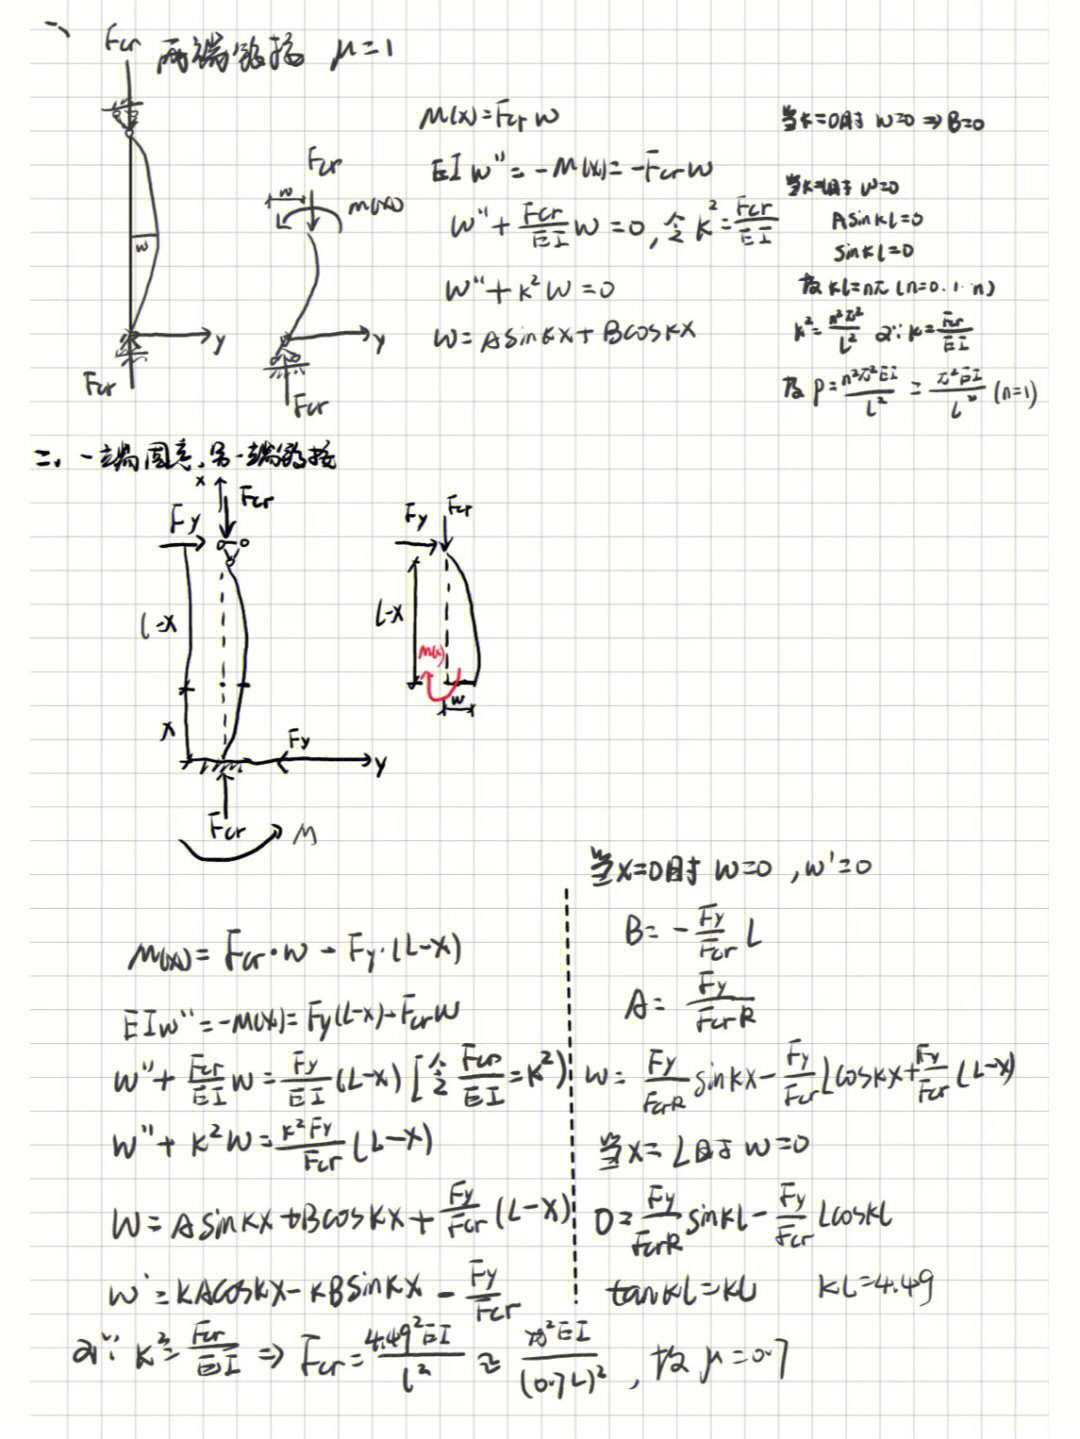 一、
Fcr 两端铰接 μ=1
M(x)=Fcr w
EIw''=-M(x)=-Fcr w
w''+Fcr/EI w=0, 令k²=Fcr/EI
w''+k²w=0
w=Asinkx+Bcoskx
当x=0时 w=0 ⇒ B=0
当x=l时 w=0
Asinkl=0
sinkl=0
故kl=nπ (n=0.1.n)
k²=n²π²/L² 又∵k=Fcr/EI
故P=n²π²EI/L²=π²EI/L² (n=1)
w
y
Fcr
Fcr
w
M(x)
y
Fcr
二、一端固定,另一端铰接
x
Fcr
Fy
l-x
x
Fy
y
Fcr
M
Fy
Fcr
L-x
M(x)
w
M(x)=Fcr·w-Fy·(L-x)
EIw''=-M(x)=Fy(L-x)-Fcrw
w''+Fcr/EI w=Fy/EI(L-x) [令Fcr/EI=k²)
w''+k²w=k²Fy/Fcr(L-x)
w=Asinkx+Bcoskx+Fy/Fcr(L-x)
w'=kAcoskx-kBsinkx-Fy/Fcr
当x=0时 w=0, w'=0
B=-Fy/Fcr L
A=Fy/FcrR
w=Fy/FcrR sinkx-Fy/Fcr Lcoskx+Fy/Fcr(L-x)
当x=L时 w=0
0=Fy/FcrR sinkl-Fy/Fcr Lcoskl
tankl=kl kl=4.49
又∵k²=Fcr/EI ⇒ Fcr=4.49²EI/l²≈π²EI/(0.7L)², 故μ=0.7